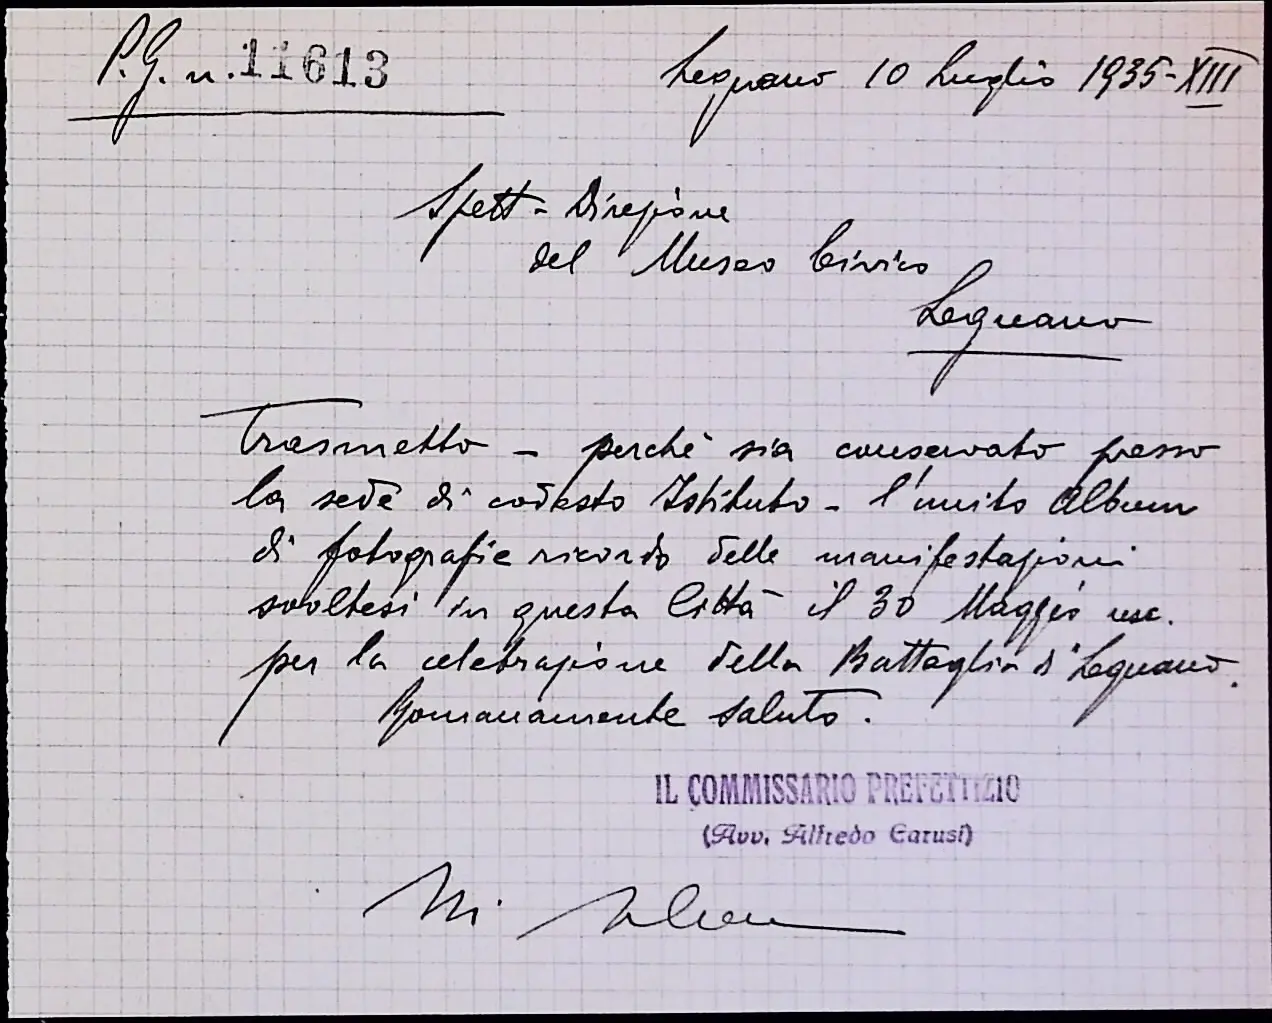 P.G. n. 11613
Legnano 10 Luglio 1935-XIII
Spett. Direzione
del Museo Civico
Legnano
Trasmetto - perchè sia conservato presso
la sede di codesto Istituto - l'unito Album
di fotografie ricordo delle manifestazioni
svoltesi in questa Città il 30 Maggio usc.
per la celebrazione della Battaglia di Legnano.
Romanamente saluto.
IL COMMISSARIO PREFETTIZIO
(Avv. Alfredo Carusi)